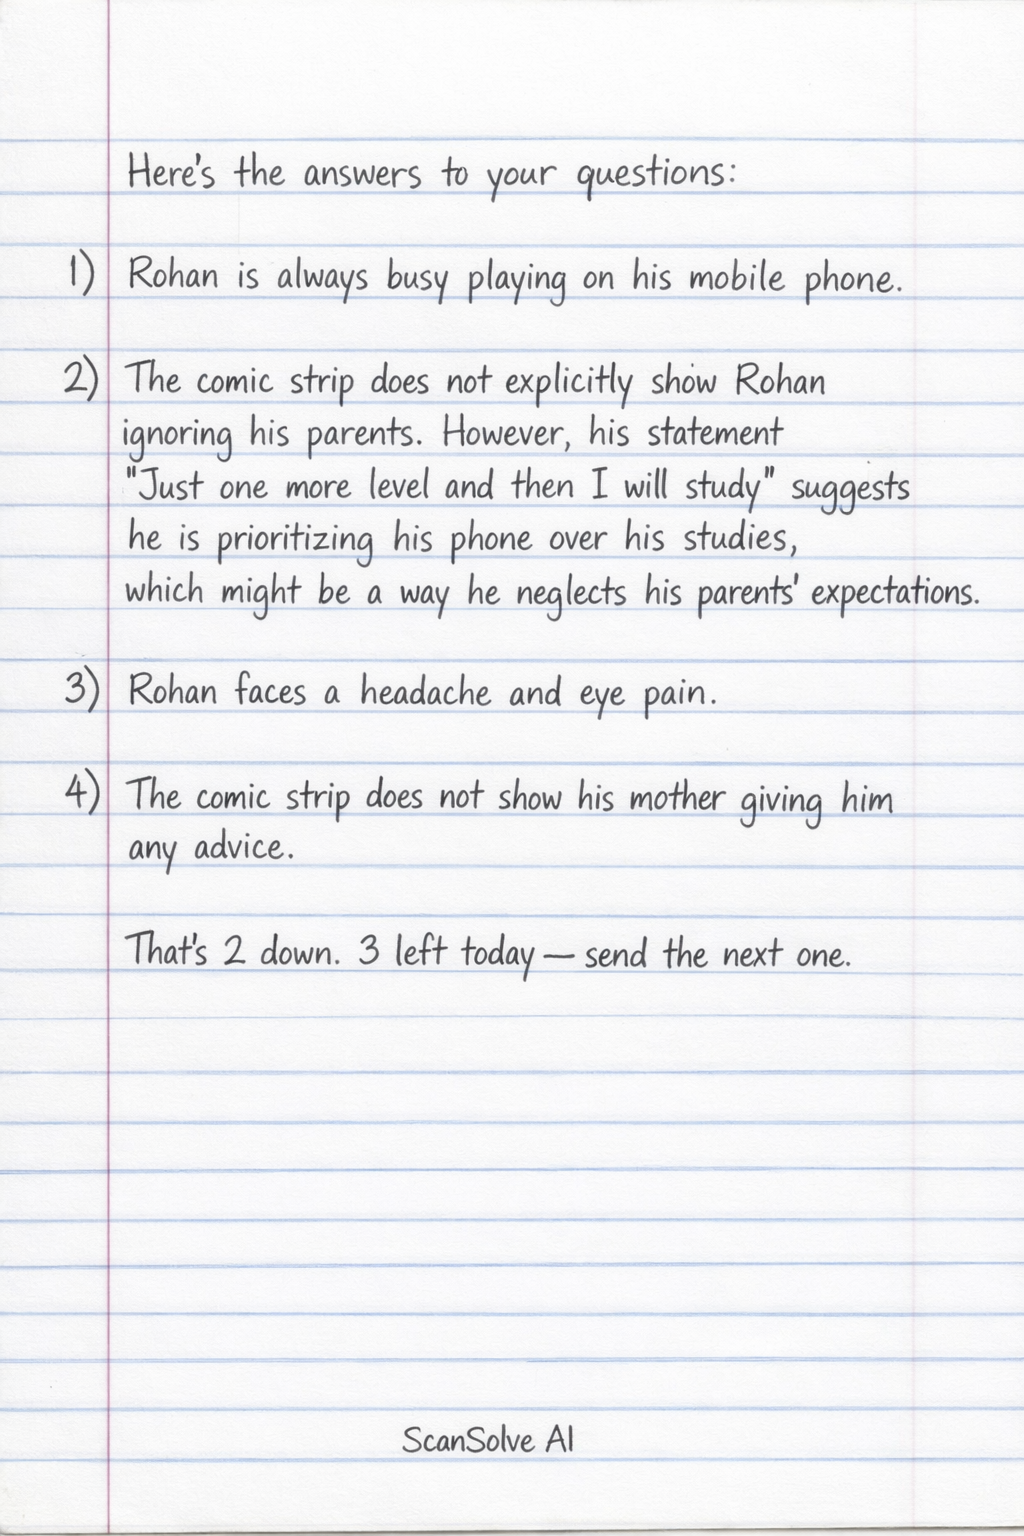 Here's the answers to your questions:
1) Rohan is always busy playing on his mobile phone.
2) The comic strip does not explicitly show Rohan
ignoring his parents. However, his statement
"Just one more level and then I will study" suggests
he is prioritizing his phone over his studies,
which might be a way he neglects his parents' expectations.
3) Rohan faces a headache and eye pain.
4) The comic strip does not show his mother giving him
any advice.
That's 2 down. 3 left today — send the next one.
ScanSolve AI